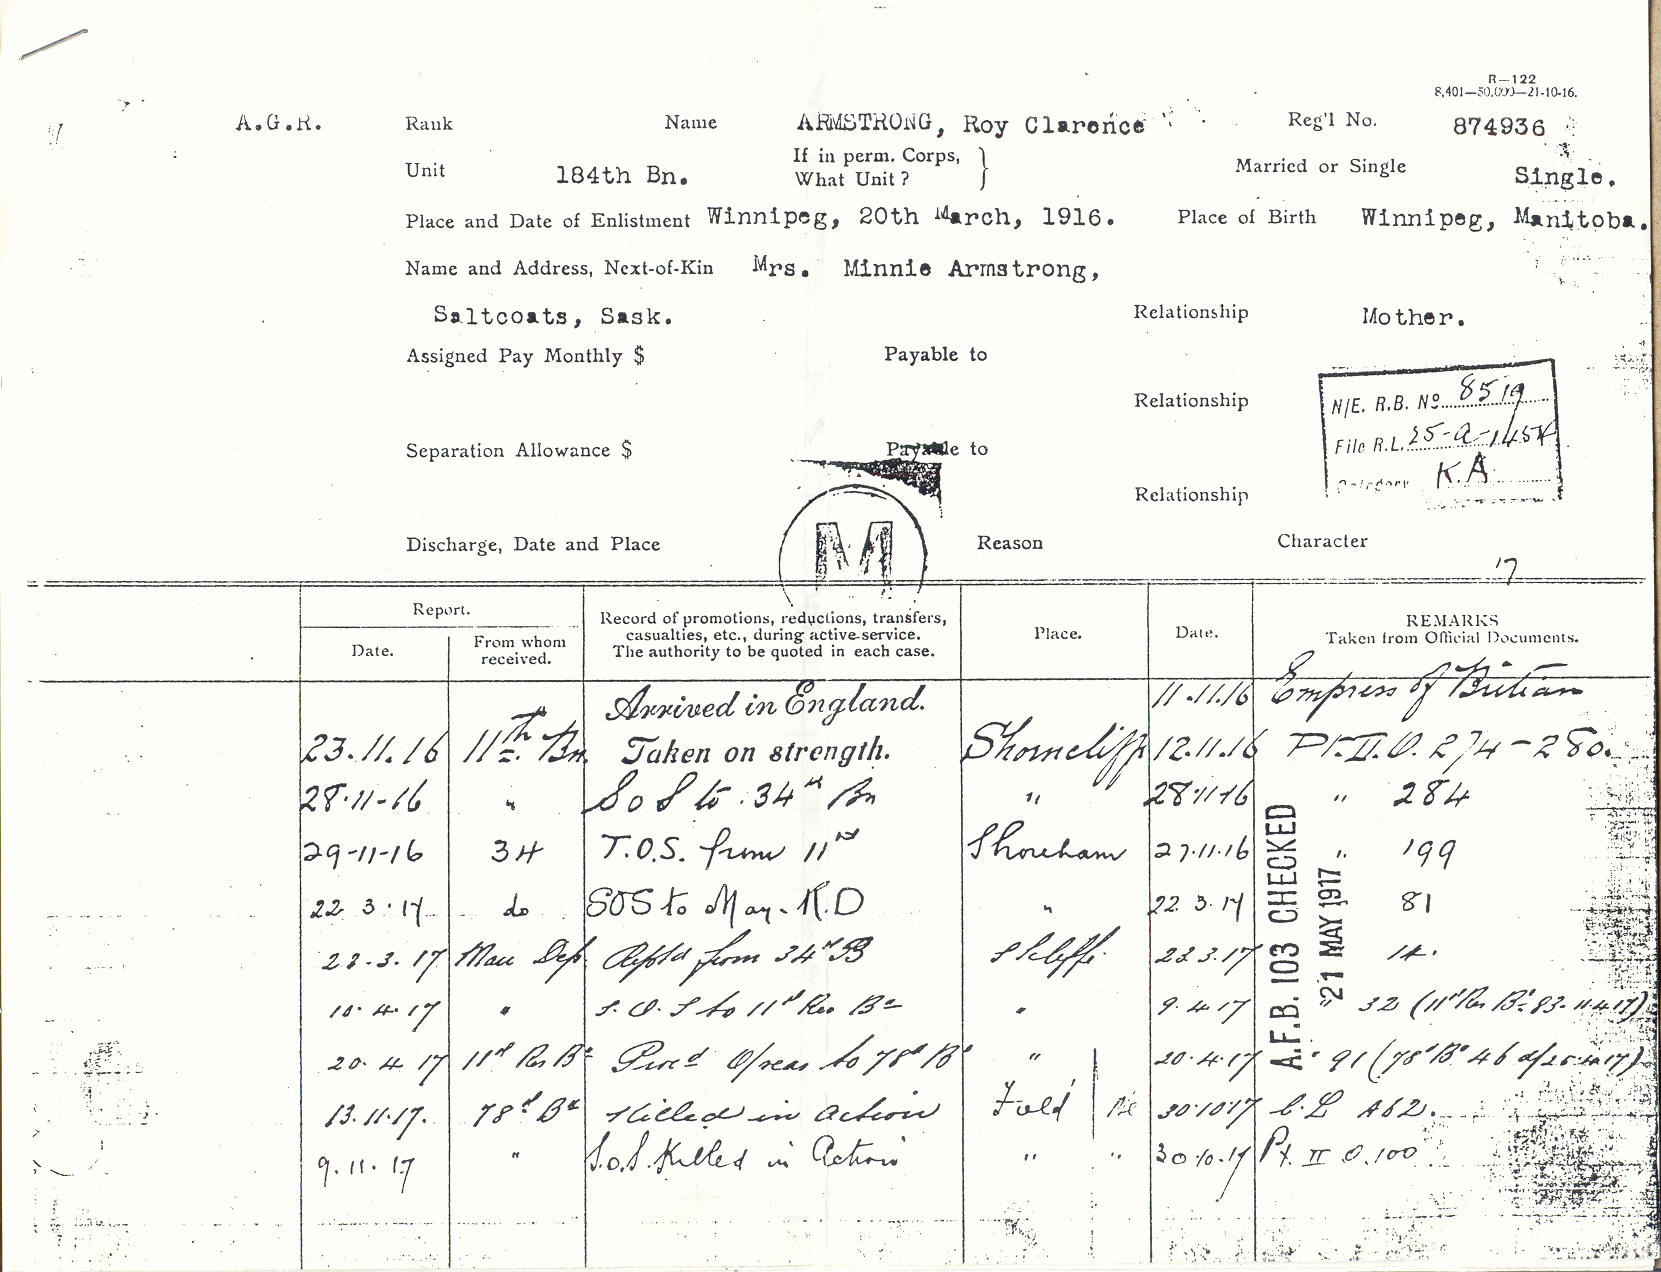 R—122
8,401—50,000—21-10-16.
A.G.R. Rank Name ARMSTRONG, Roy Clarence Reg'l No. 874936
Unit 184th Bn. If in perm. Corps, What Unit? Married or Single Single.
Place and Date of Enlistment Winnipeg, 20th March, 1916. Place of Birth Winnipeg, Manitoba.
Name and Address, Next-of-Kin Mrs. Minnie Armstrong,
Saltcoats, Sask. Relationship Mother.
Assigned Pay Monthly $ Payable to
Relationship
N/E. R.B. No 8519
File R.L. 25-a-1454
Category K.A
Separation Allowance $ Payable to
Relationship
M
Discharge, Date and Place Reason Character
17
Report. Record of promotions, reductions, transfers, casualties, etc., during active service. The authority to be quoted in each case. Place. Date. REMARKS Taken from Official Documents.
Date. From whom received.
Arrived in England. 11.11.16 Empress of Britian
23.11.16 11th Bn Taken on strength. Shorncliffe 12.11.16 Pt.II.O. 274-280.
28.11-16 " S o S to 34th Bn " 28.11.16 " 284
29-11-16 34 T.O.S. from 11th Shoreham 27.11.16 " 199
22 3.17 do SOS to Man. R.D " 22 3.17 81
22.3.17 Man Dep from 34th B S'cliffe 23.3.17 14.
10.4.17 " S.O.S to 11th Res Bn " 9.4.17 " 32 (11th Res Bn 83-11.4.17)
20.4.17 11th Res Bn Proc'd O/seas to 78th Bn " 20.4.17 " 91 (78th Bn 46 d/25.4.17)
13.11.17. 78th Bn Killed in action Field 30.10.17 C.L A62.
9.11.17 " S.o.S. Killed in Action " " 30.10.17 Pt. II O.100
A.F.B. 103 CHECKED
21 MAY 1917